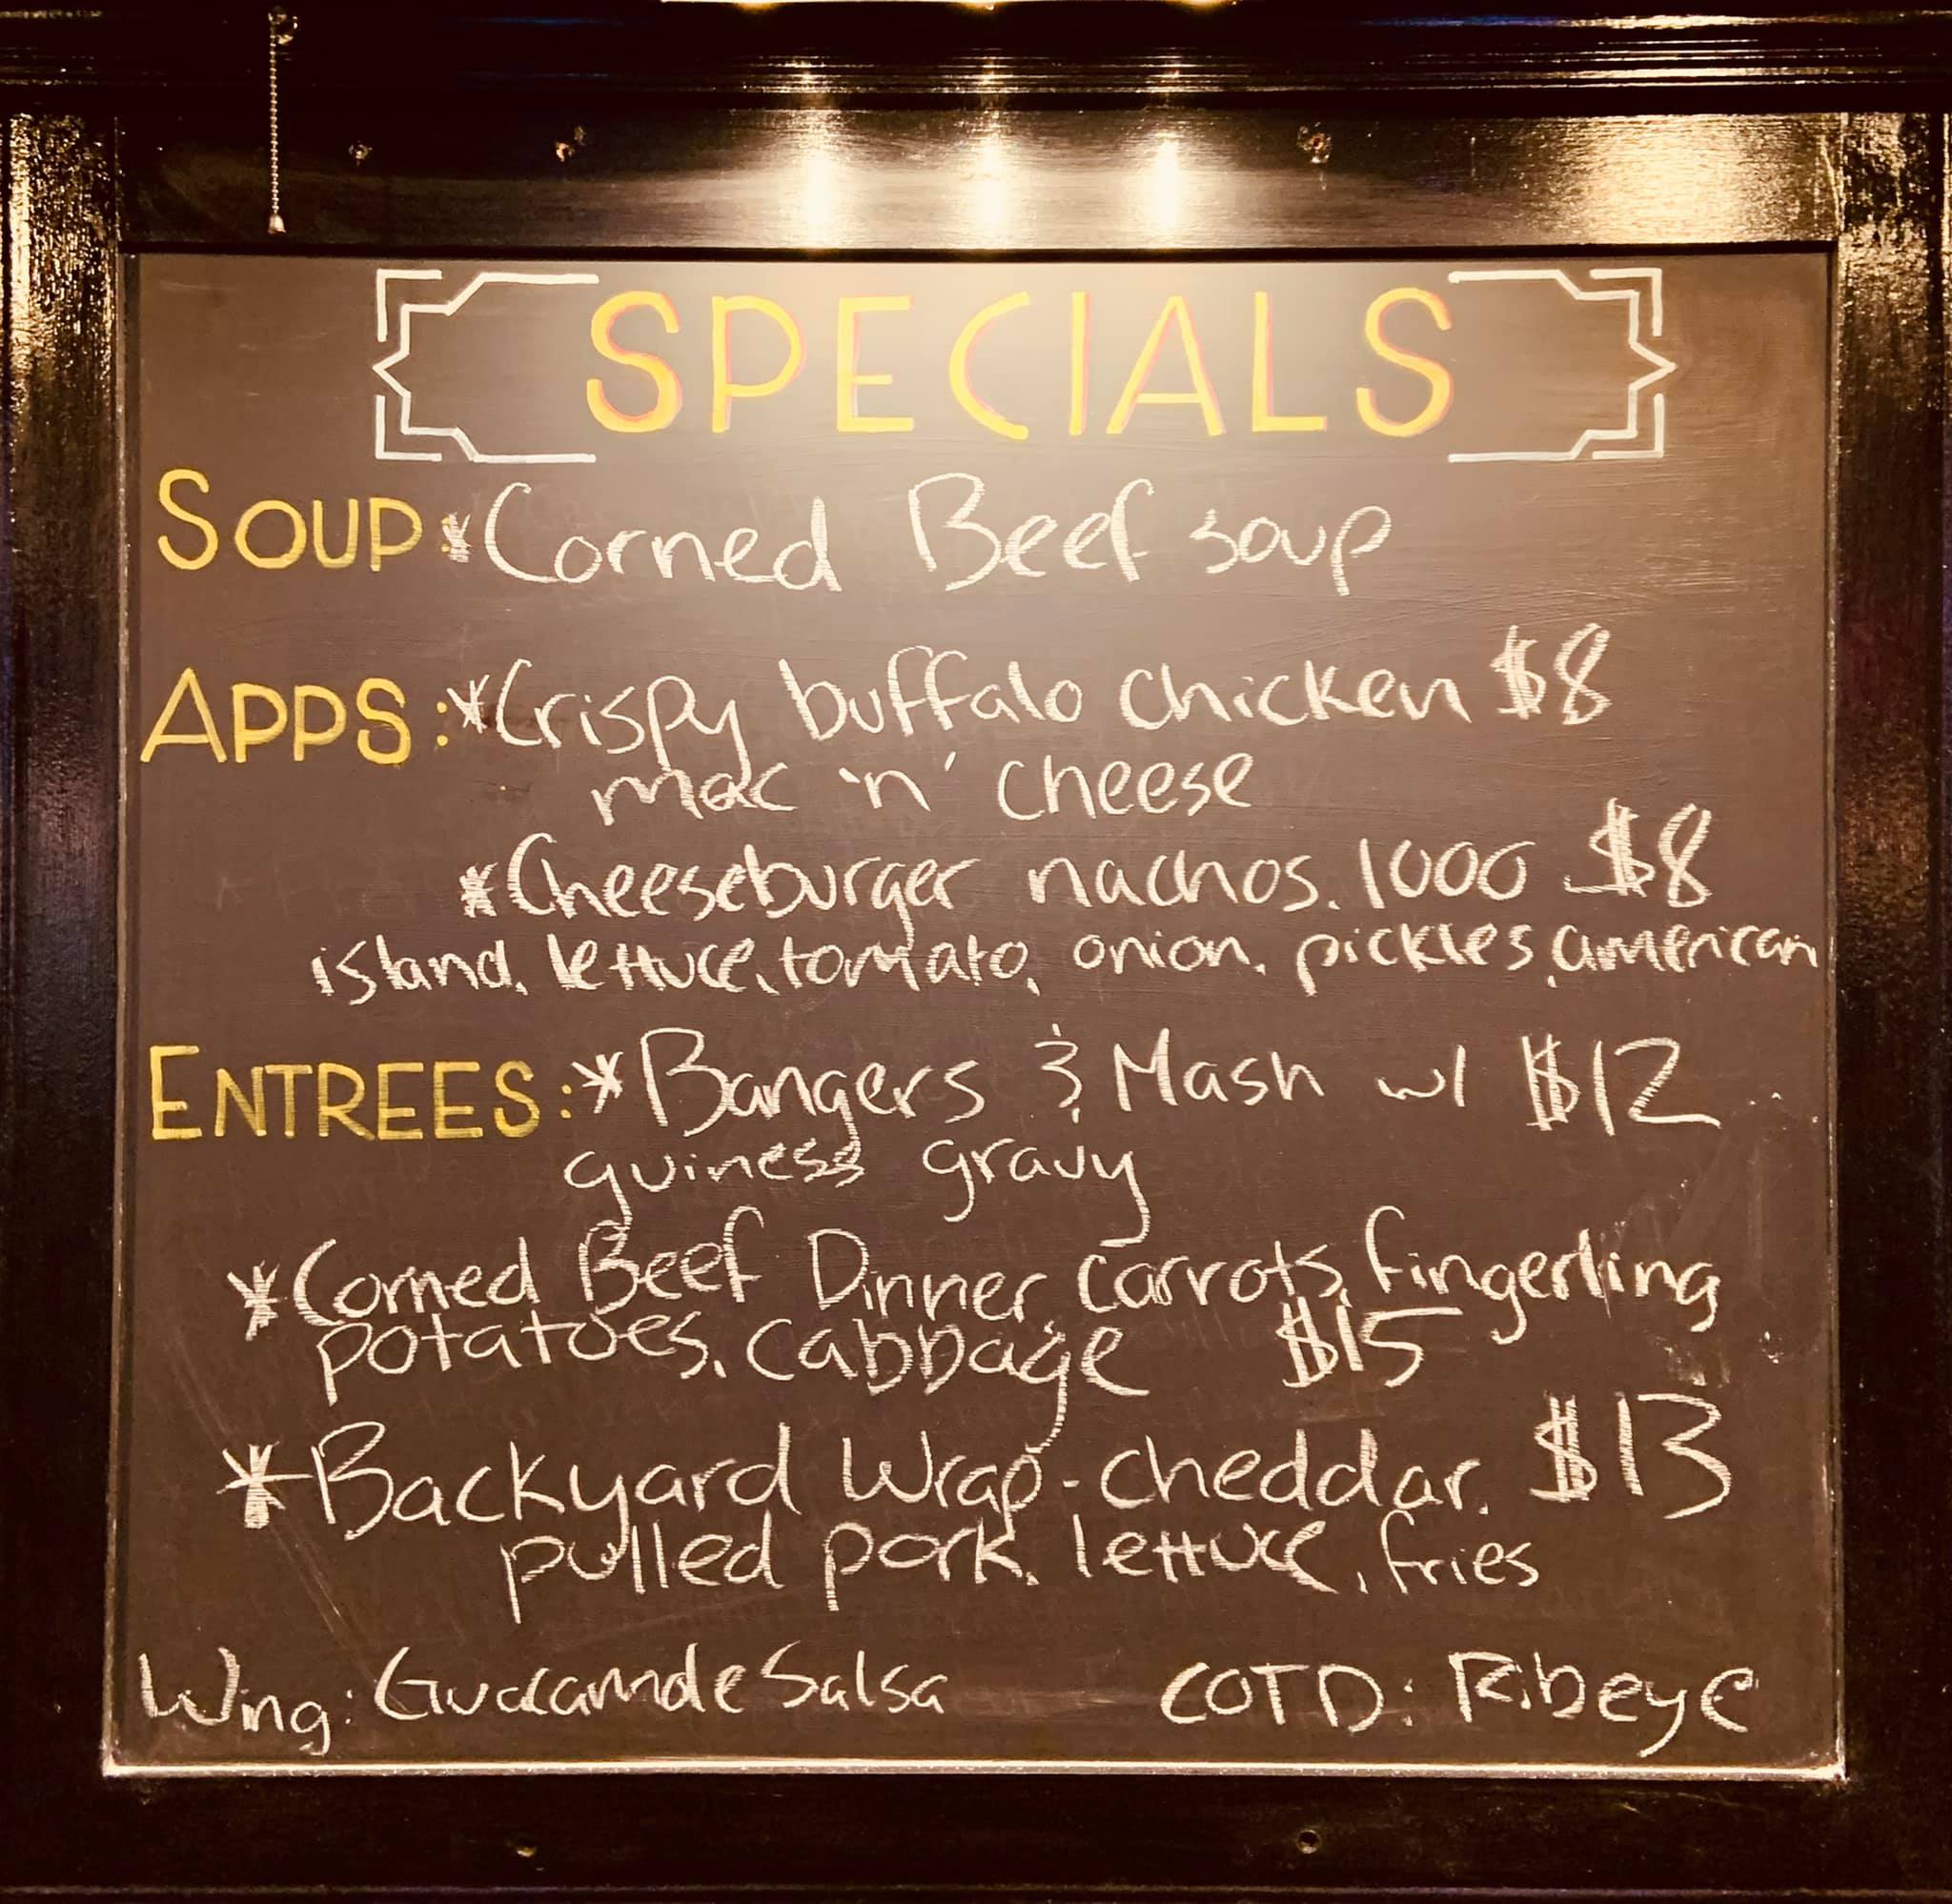 SPECIALS
SOUP: *Corned Beef soup
APPS: *Crispy buffalo chicken $8
mac 'n' cheese
*Cheeseburger nachos. 1000 $8
island, lettuce, tomato, onion, pickles, american
ENTREES: *Bangers & Mash w/ $12
guiness gravy
*Corned Beef Dinner carrots, fingerling
potatoes, cabbage $15
*Backyard Wrap - cheddar, $13
pulled pork, lettuce, fries
Wing: Guacamole Salsa COTD: Ribeye